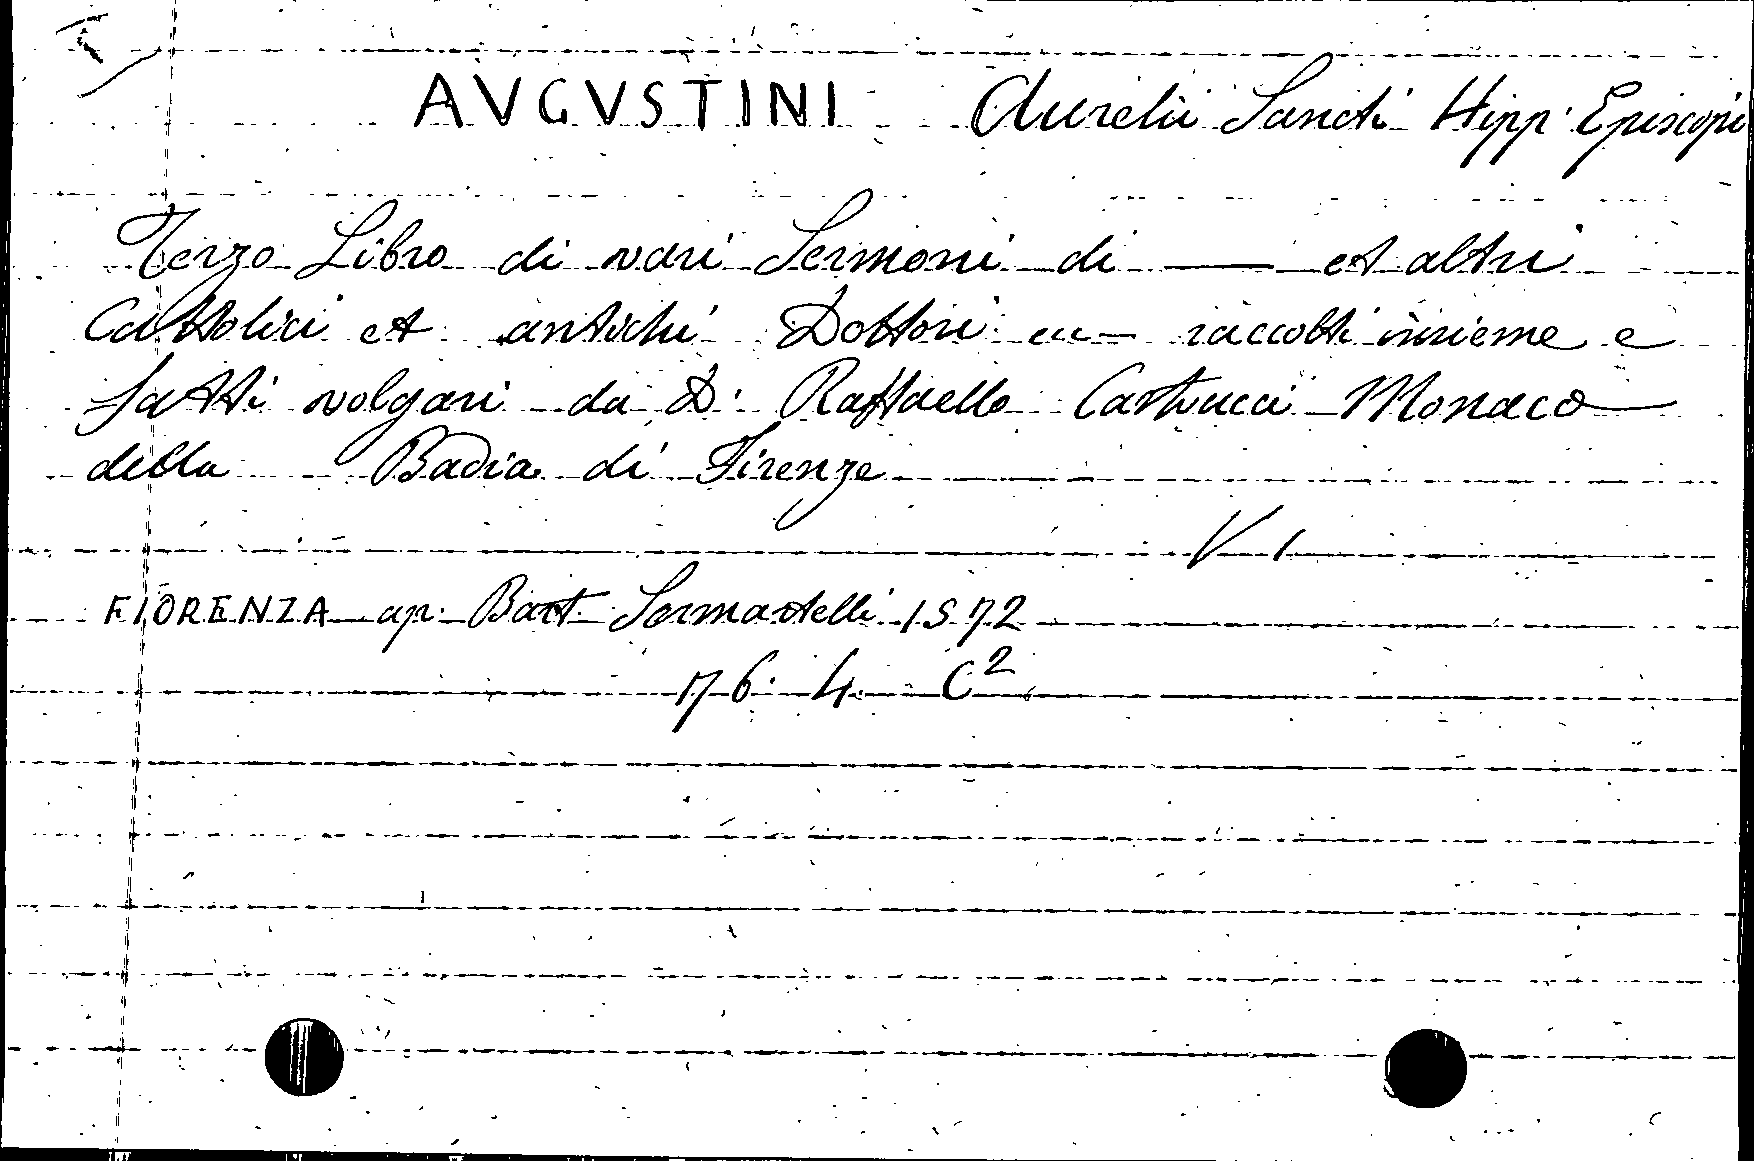 AVGVSTINI Aurelii Sancti Hipp. Episcopi
Terzo Libro di vari Sermoni di — et altri
Cattolici et antichi Dottori ec — raccolti insieme e
fatti volgari da D. Raffaello Castrucci Monaco
della Badia di Firenze
V 1
FIORENZA ap. Bart Sermartelli 1572
176. 4. C²